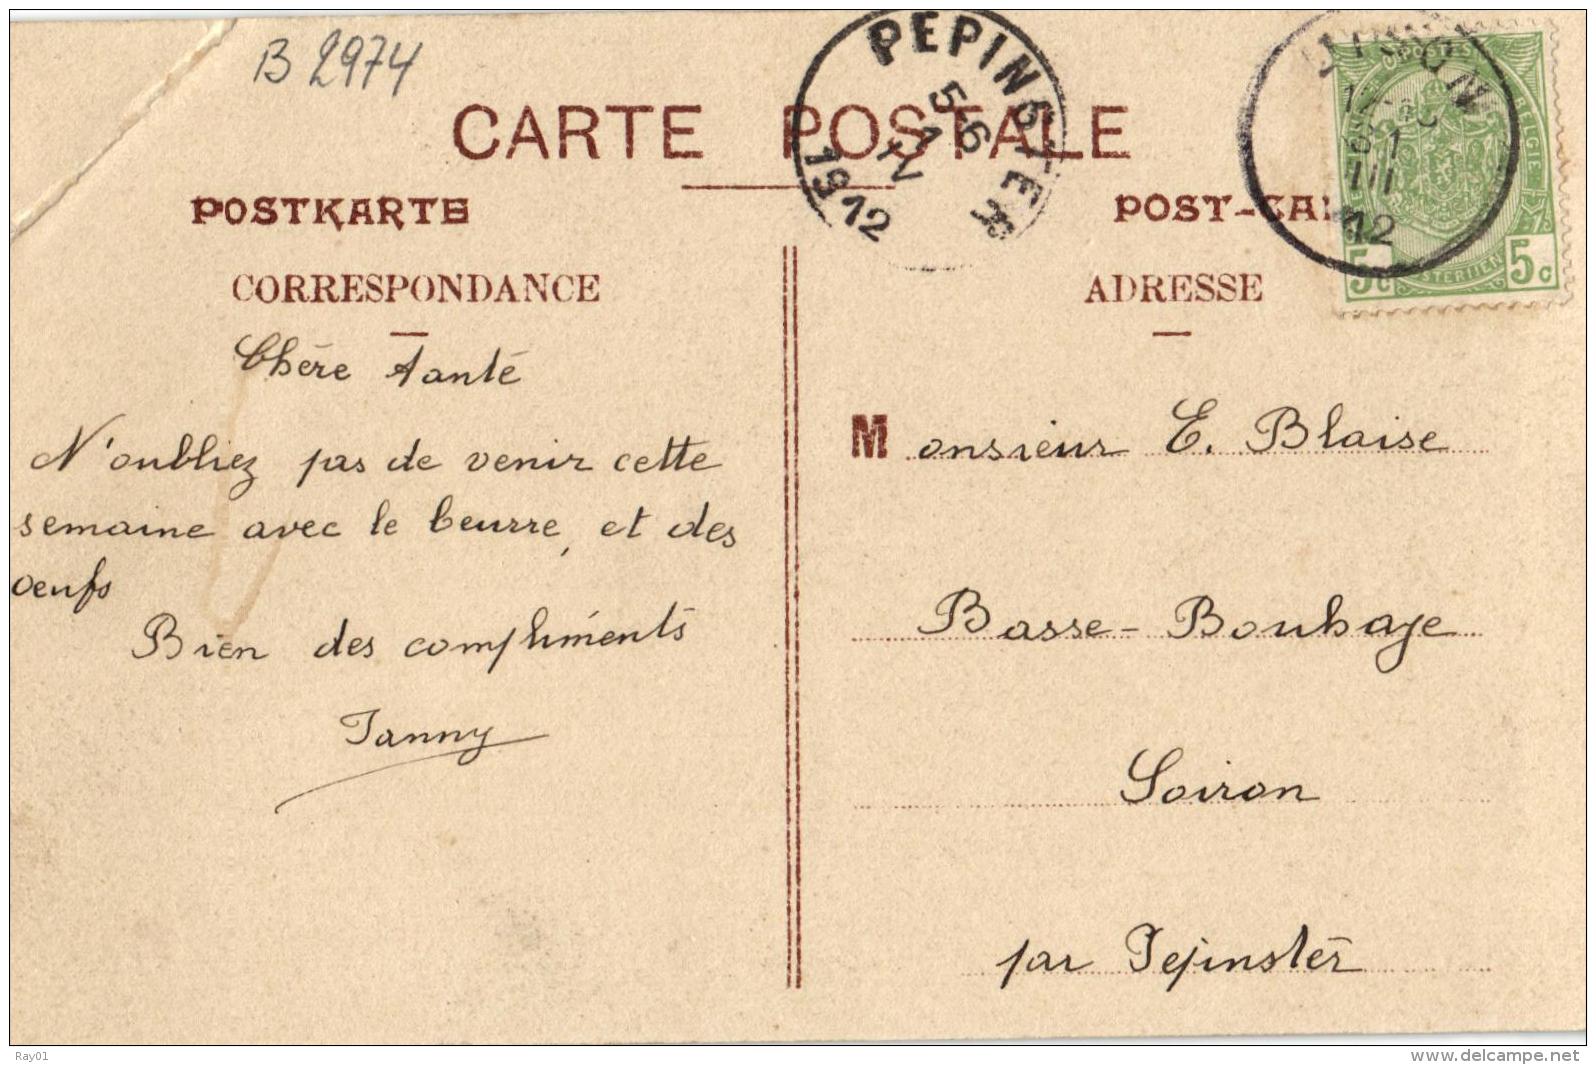 B 2974
CARTE POSTALE
PEPINSTER
5-6
1 IV
1912
12
5c 5c
POSTKARTE
POST-CA
CORRESPONDANCE
ADRESSE
Chère Tante
N'oubliez pas de venir cette
semaine avec le beurre, et des
oeufs
Bien des compliments
Fanny
Monsieur E. Blaise
Basse-Bouhaye
Soiron
par Pepinster
Ray01
www.delcampe.net